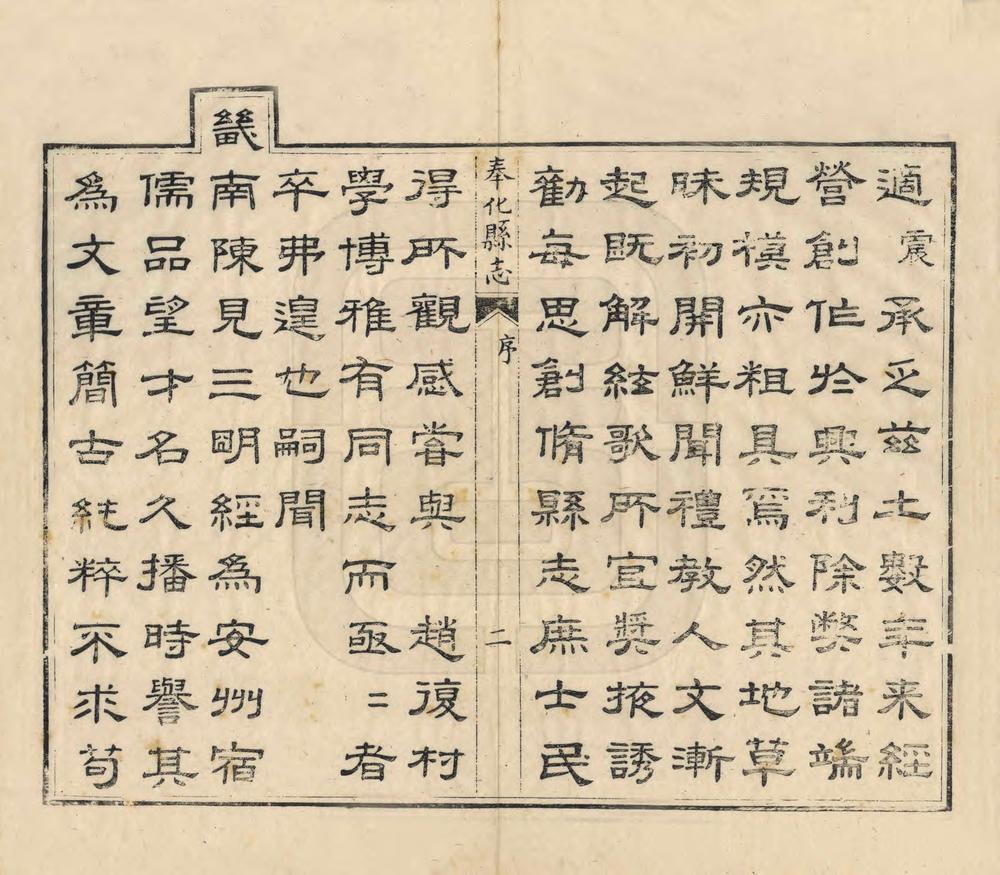 適震承乏茲土數年来經
營創作於興利除弊諸端
規模亦粗具焉然其地草
昧初開鮮聞禮教人文漸
起既解絃歌所宜獎掖誘
勸每思創脩縣志庶士民
奉化縣志 序 二
得所觀感嘗與 趙復村
學博雅有同志而亟二者
卒弗遑也嗣聞
畿南陳見三明經為安州宿
儒品望才名久播時譽其
為文章簡古純粹不求苟